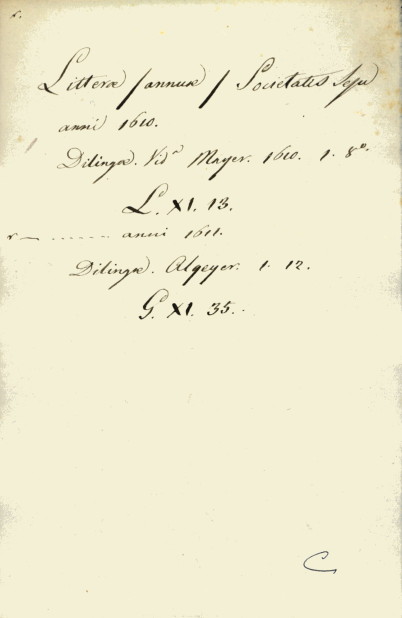 r.
Litteræ /annuæ/ Societatis Jesu
anni 1610.
Dilingæ. Vidᵃ Mayer. 1610. 1. 8º.
L. XI. 13.
r — ...... anni 1611.
Dilingæ. Algeyer. 1. 12.
G. XI. 35.
C